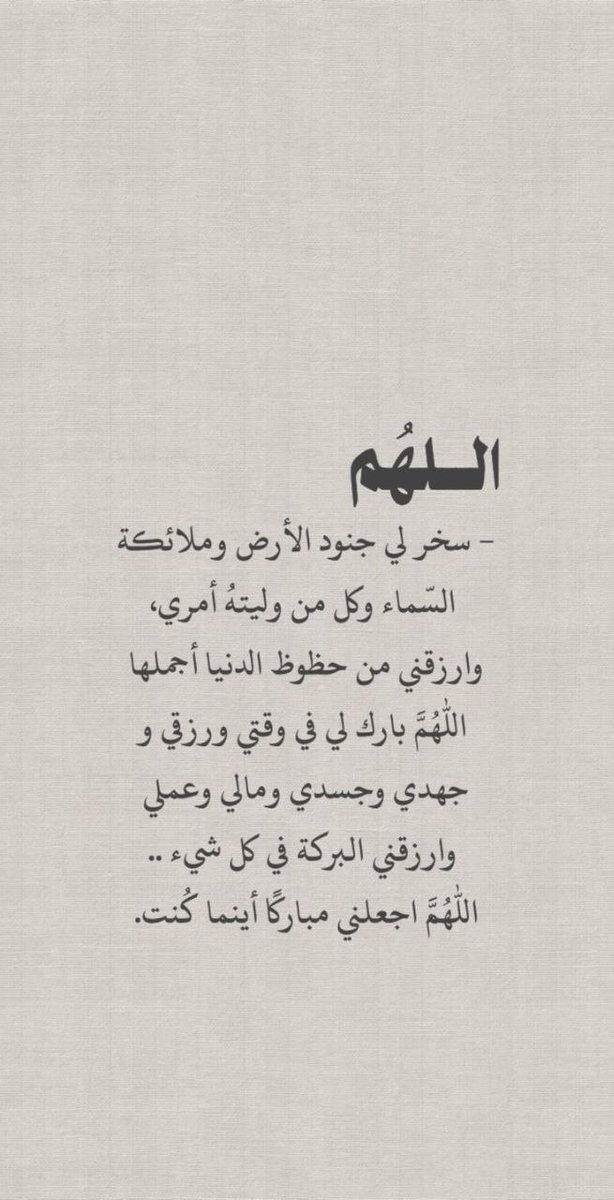 اللهُم
- سخر لي جنود الأرض وملائكة
السّماء وكل من وليتهُ أمري،
وارزقني من حظوظ الدنيا أجملها
اللّٰهُمَّ بارك لي في وقتي ورزقي و
جهدي وجسدي ومالي وعملي
وارزقني البركة في كل شيء ..
اللّٰهُمَّ اجعلني مباركًا أينما كُنت.